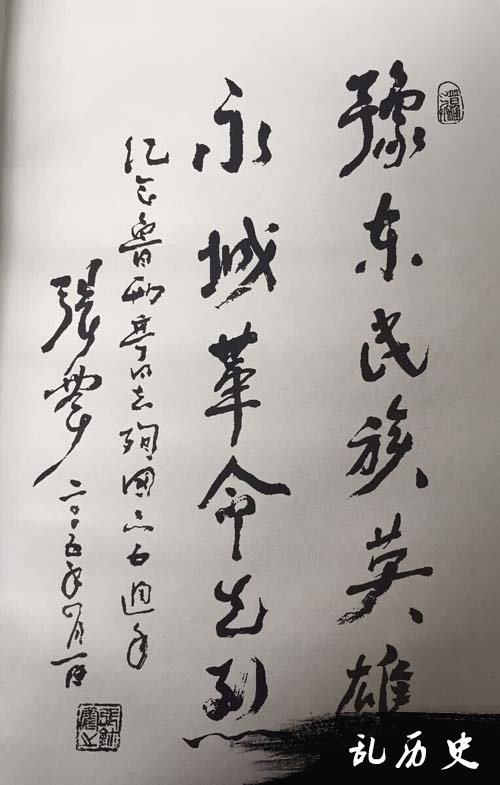 豫东民族英雄
永城革命先烈
纪念鲁雨亭同志殉国六五週年
张震 二〇〇五年四月一日
乱历史